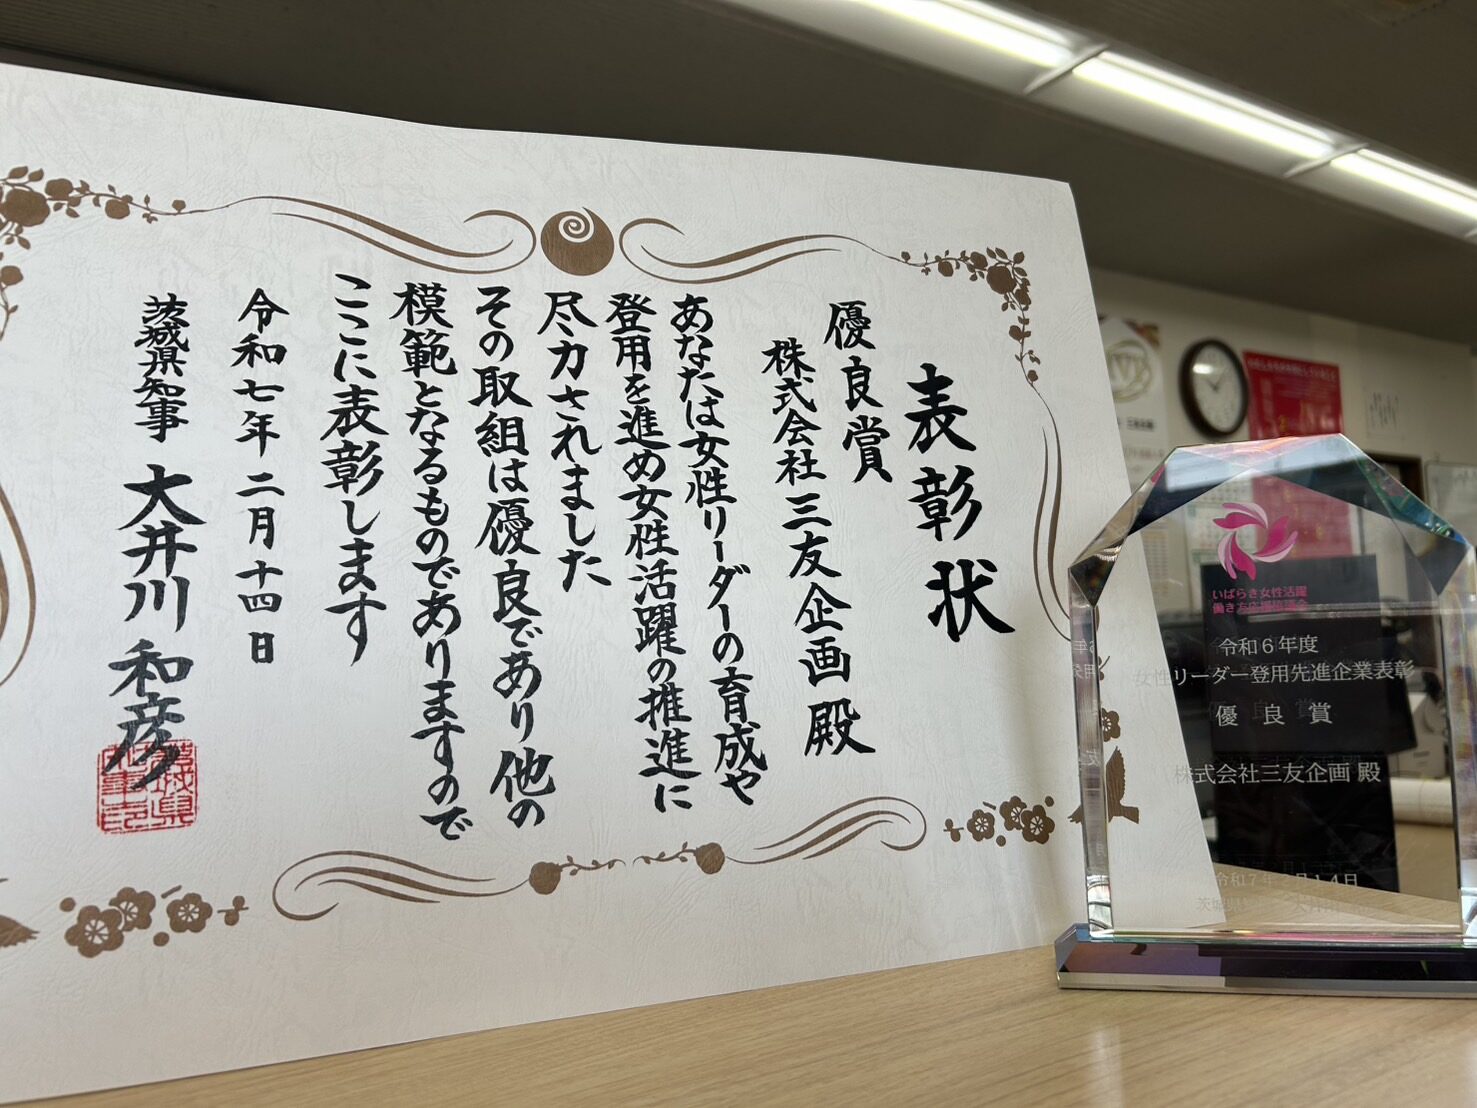 表彰状
優良賞
株式会社三友企画殿
あなたは女性リーダーの育成や
登用を進め女性活躍の推進に
尽力されました
その取組は優良であり他の
模範となるものでありますので
ここに表彰します
令和七年二月十四日
茨城県知事 大井川和彦
いばらき女性活躍
働き方応援協議会
令和6年度
女性リーダー登用先進企業表彰
優良賞
株式会社三友企画 殿
令和7年2月14日